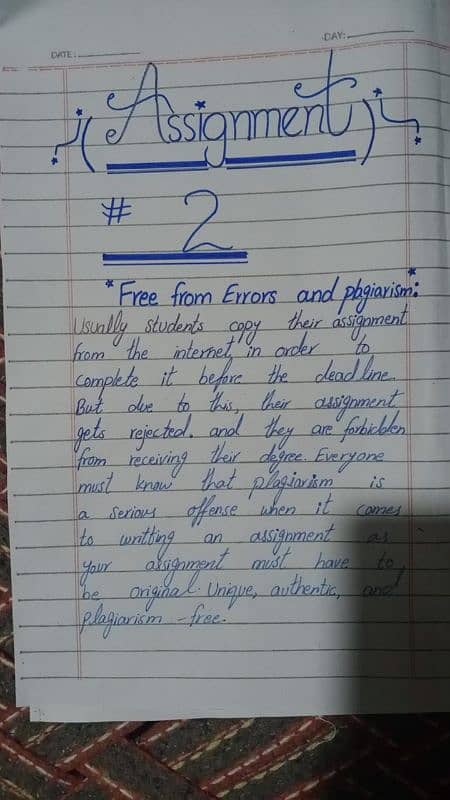 DATE:
DAY:
(Assignment)
# 2
*Free from Errors and plagiarism:*
Usually students copy their assignment
from the internet, in order to
complete it before the deadline.
But due to this, their assignment
gets rejected. and they are forbidden
from receiving their degree. Everyone
must know that plagiarism is
a serious offense when it comes
to writting an assignment as
your assignment must have to
be original. Unique, authentic, and
plagiarism - free.